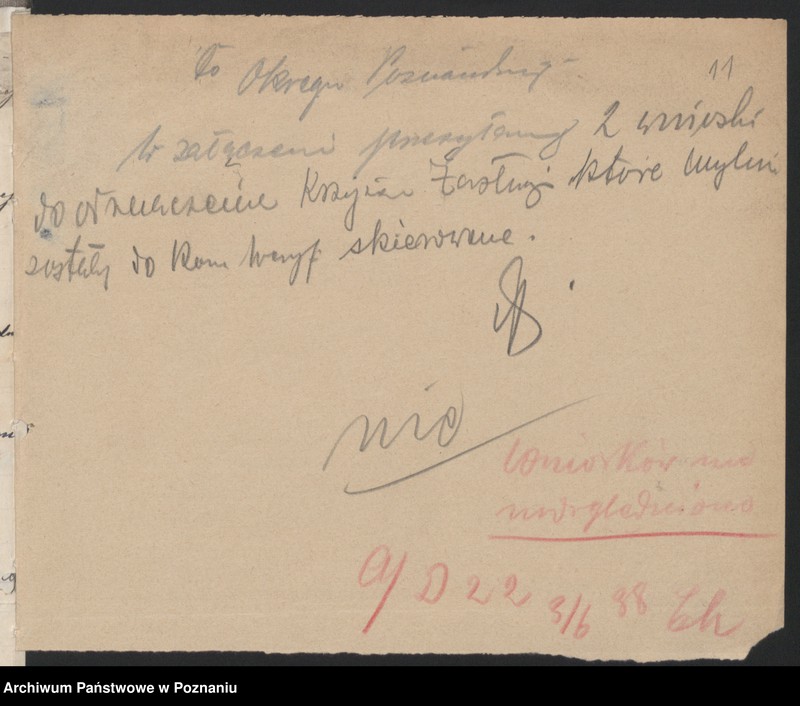 11
Do Okręgu Poznańskiego
W załączeniu przesyłamy 2 wnioski
do odznaczenia Krzyża Zasługi które mylnie
zostały do Kom Weryf skierowane.
nie
Wniosków nie
uwzględniono
a/ D 22 3/6 38
Archiwum Państwowe w Poznaniu